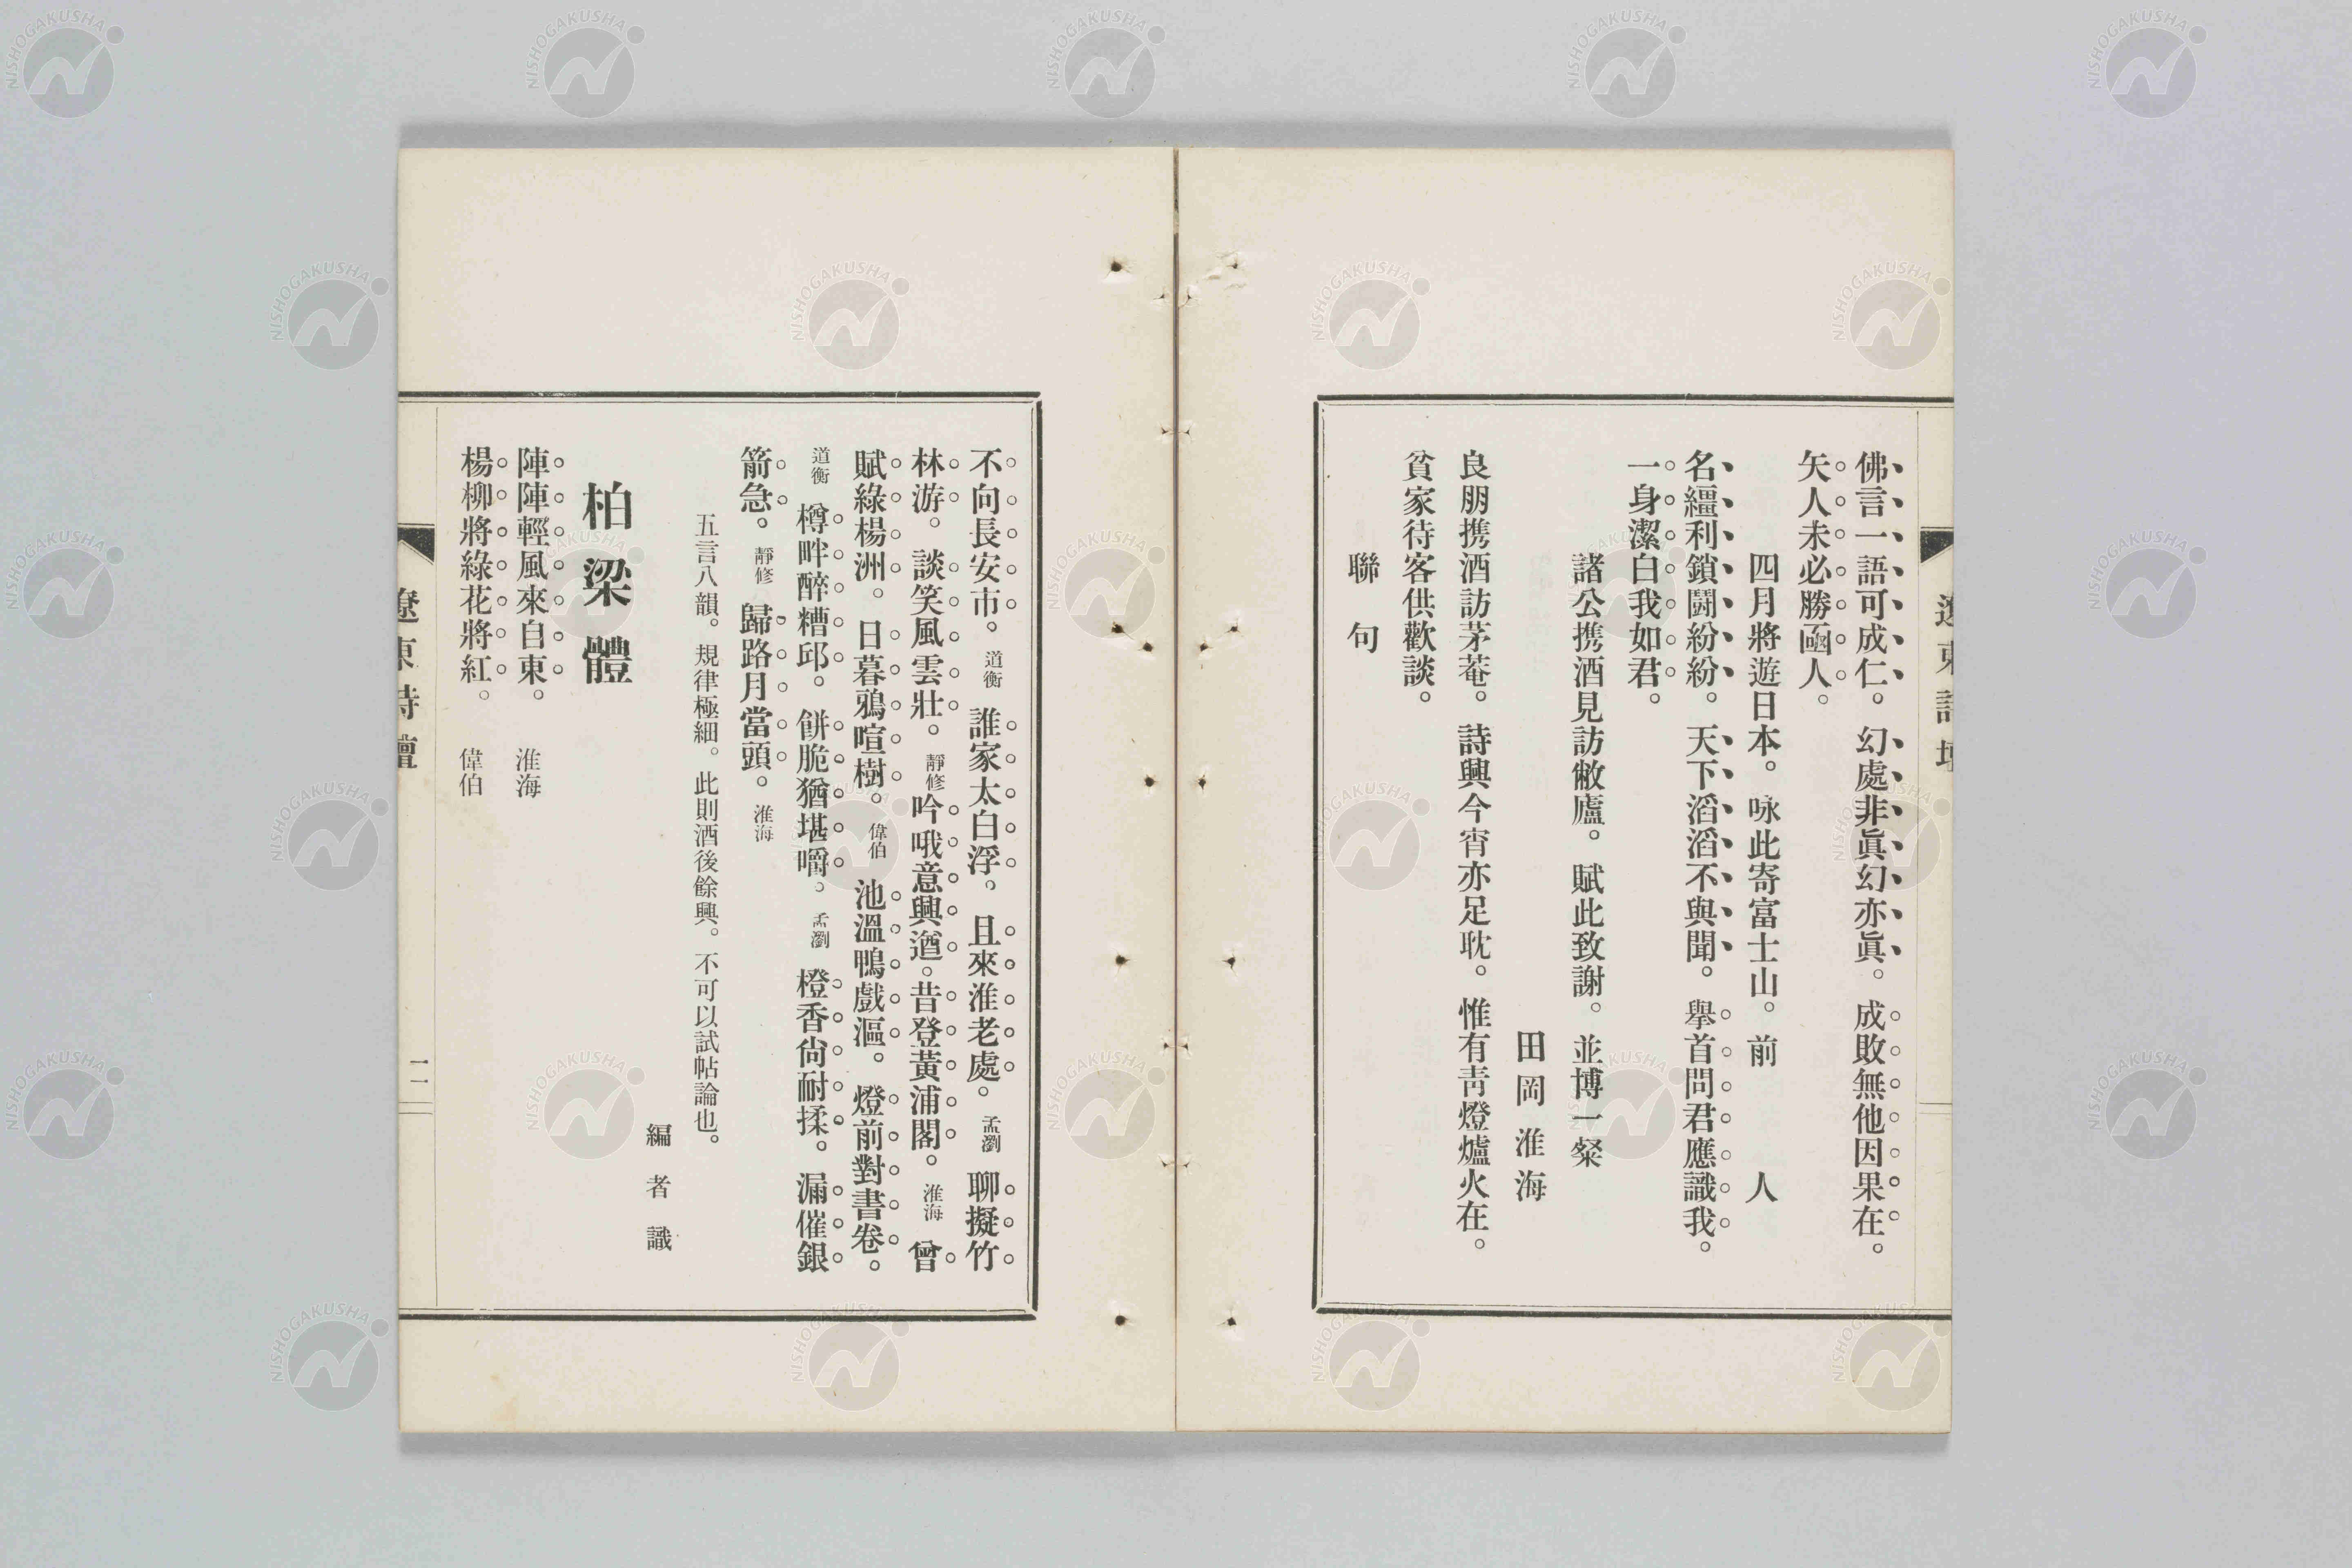 佛言一語可成仁。幻處非眞幻亦眞。成敗無他因果在。
矢人未必勝凾人。
四月將遊日本。咏此寄富士山。前人
名繮利鎖鬪紛紛。天下滔滔不與聞。擧首問君應識我。
一身潔白我如君。
諸公携酒見訪敝廬。賦此致謝。並博一粲
田岡淮海
良朋携酒訪茅菴。詩興今宵亦足耽。惟有靑燈爐火在。
貧家待客供歡談。
聯句
不向長安市。道衡 誰家太白浮。且來淮老處。孟瀏 聊擬竹
林游。談笑風雲壯。靜修 吟哦意興遒。昔登黃浦閣。淮海 曾
賦綠楊洲。日暮鴉喧樹。偉伯 池溫鴨戲漚。燈前對書卷。
道衡 樽畔醉糟邱。餅脆猶堪嚼。孟瀏 橙香尙耐揉。漏催銀
箭急。靜修 歸路月當頭。淮海
五言八韻。規律極細。此則酒後餘興。不可以試帖論也。
編者識
柏梁體
陣陣輕風來自東。淮海
楊柳將綠花將紅。偉伯
遼東詩壇
一一
NISHOGAKUSHA